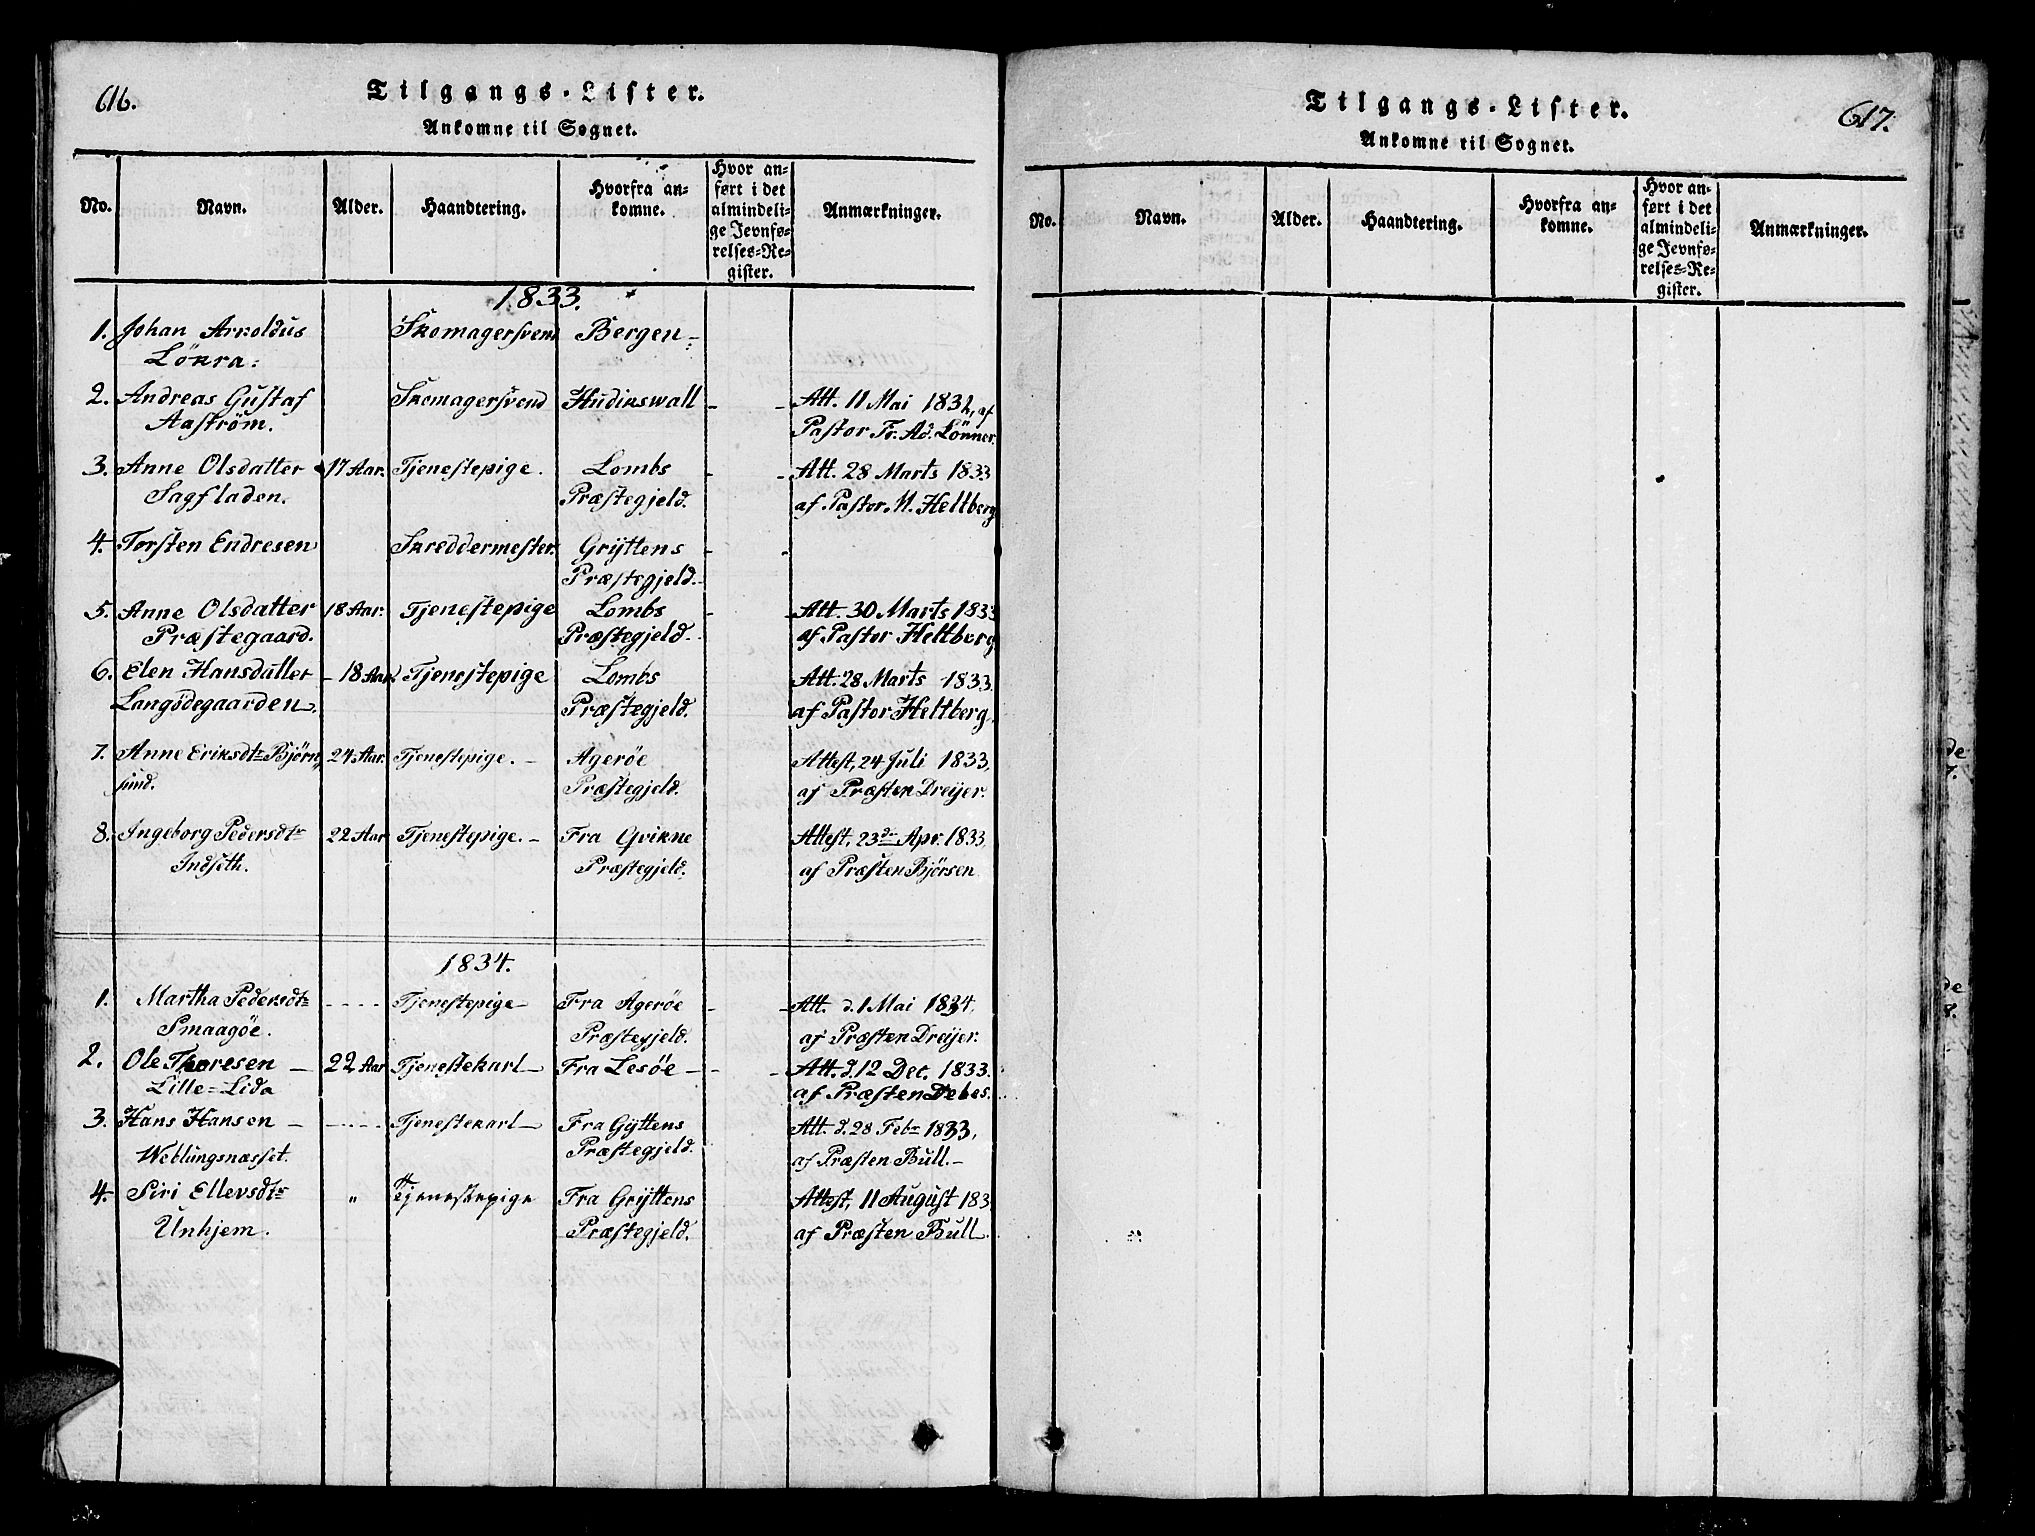 616.
Tilgangs-Lister.
Ankomne til Sognet.
No. Navn. Alder. Haandtering. Hvorfra an=
komne. Hvor an=
ført i det
almindeli=
ge Jevnfø=
relses=Re=
gister. Anmærkninger.
1833.
1. Johan Arnoldus Skomagersvend Bergen
Lökra.
2. Andreas Gustaf Skomagersvend Hudikswall Att. 11 Mai 1832, af
Aaström. Pastor Fr. Ad. Lönner.
3. Anne Olsdatter 17 Aar. Tjenestepige. Lombs Att. 28 Marts 1833
Sagfladen. Præstegjeld. af Pastor M. Heltberg
4. Torsten Endresen Skreddermester. Gryttens
Præstegjeld.
5. Anne Olsdatter 18 Aar. Tjenestepige Lombs Att. 30 Marts 1833
Præstegaard. Præstegjeld. af Pastor Heltberg
6. Elen Hansdatter 18 Aar Tjenestepige Lombs Att. 28 Marts 1833.
Langödegaarden. Præstegjeld. af Pastor Heltberg,
7. Anne Eriksdtr Björn, 24 Aar. Tjenestepige. Agerøe Attest, 24 Juli 1833,
sund. Præstegjeld. af Præsten Dreijer.
8. Ingeborg Pedersdtr 22 Aar Tjenestepige. Fra Qvikne Attest, 23de Apr. 1833.
Indseth. Præstegjeld. af Præsten Björsen.
1834.
1. Martha Pedersdtr Tjenestepige Fra Agerøe Att. d. 1 Mai 1834.
Smaagöe. Præstegjeld. af Præsten Dreijer.
2. Ole Thoresen 22 Aar Tjenestekarl Fra Lesöe Att. d. 12 Dec. 1833.
Lille=Lida af Præsten Debes.
3. Hans Hansen Tjenestekarl Fra Gyttens Att. d. 28 Febr 1833,
Weblungsnæsset. Præstegjeld. af Præsten Bull.
4. Siri Ellevsdtr " Tjenestepige Fra Gryttens Attest, 11 August 183
Unhjem. Præstegjeld. af Præsten Bull
Tilgangs-Lister.
617.
Ankomne til Sognet.
No. Navn. Alder. Haandtering. Hvorfra an=
komne. Hvor an=
ført i det
almindeli=
ge Jevnfø=
relses=Re=
gister. Anmærkninger.